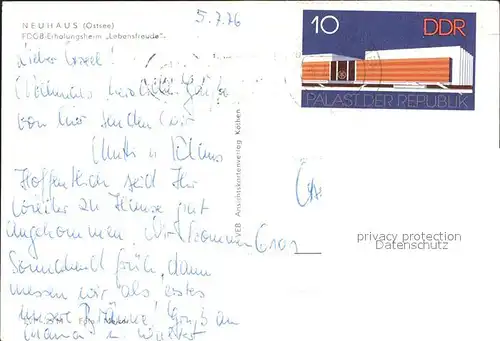 NEUHAUS (Ostsee)
FDGB-Erholungsheim „Lebensfreude"
5.7.76
10 DDR
PALAST DER REPUBLIK
Lieber
Nochmals herzliche Grüße
von hier senden wir
Mutti u. Klaus
Hoffentlich seid Ihr
wieder zu Hause gut
angekommen. Wir kommen
Sonnabend früh, dann
messen wir als erstes
unsere Bräune! Gruß an
Mama u.
VEB Ansichtskartenverlag Köthen
privacy protection
Datenschutz